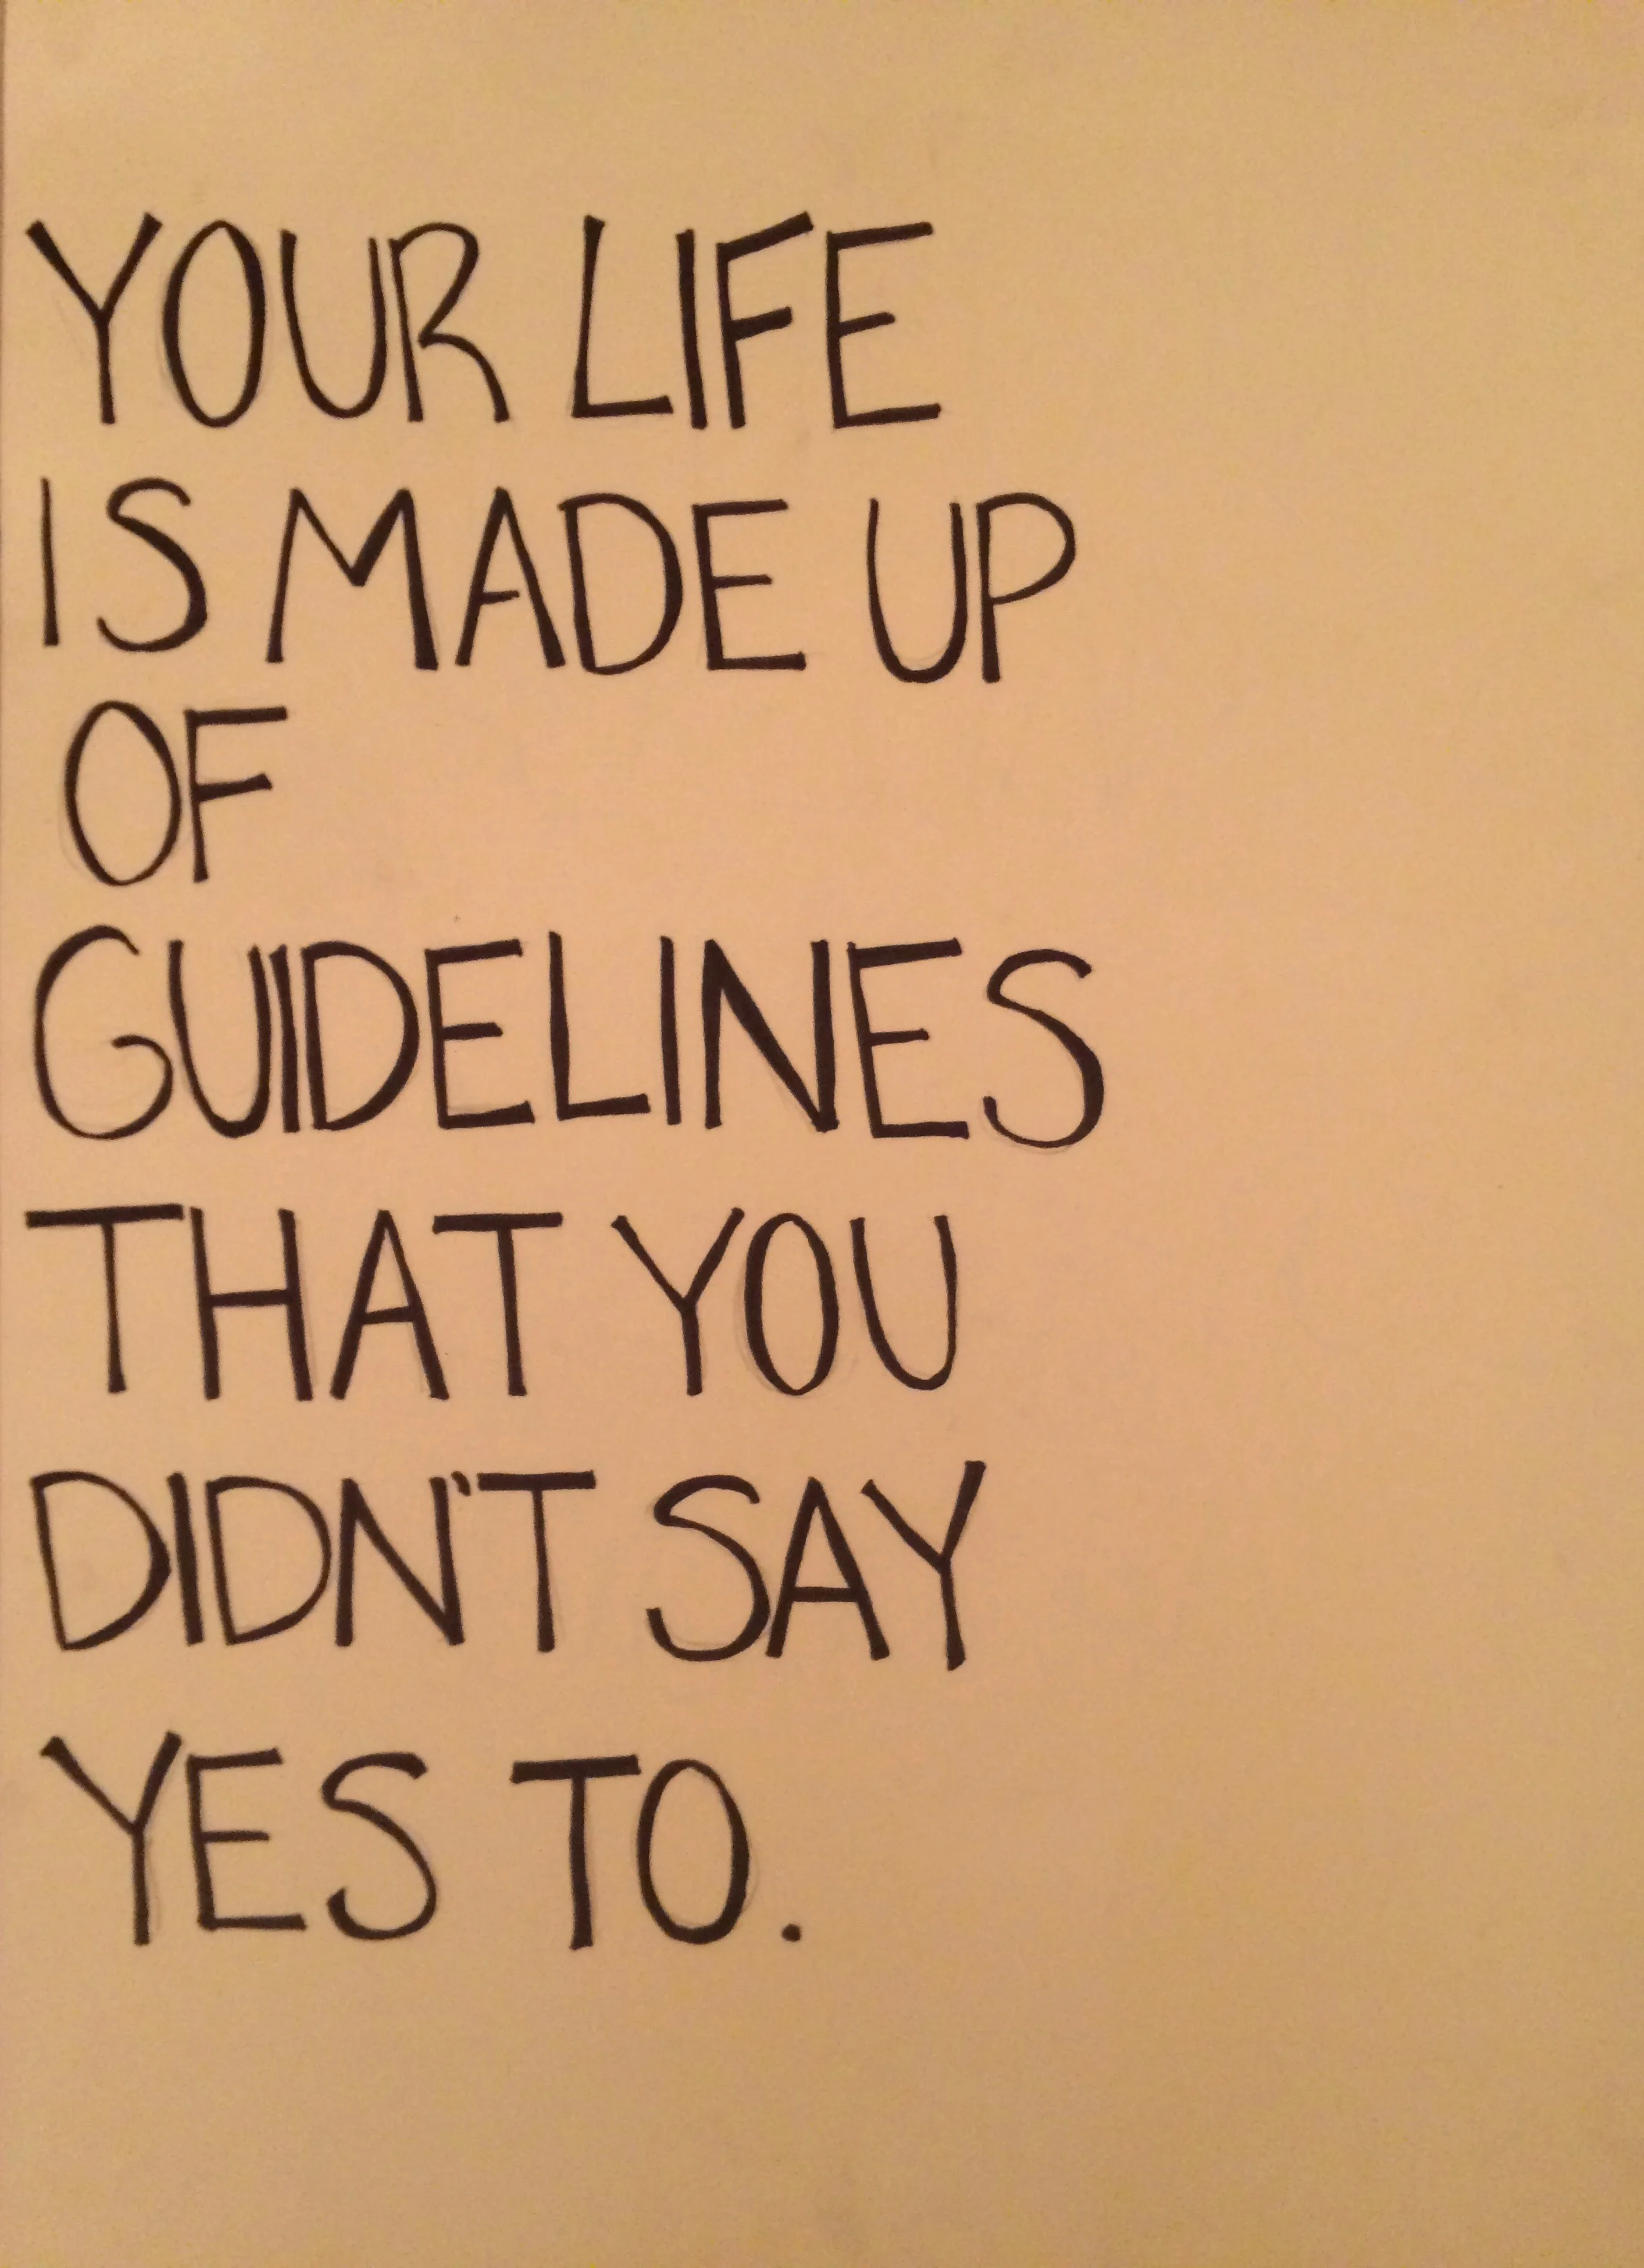 YOUR LIFE
IS MADE UP
OF
GUIDELINES
THAT YOU
DIDN'T SAY
YES TO.